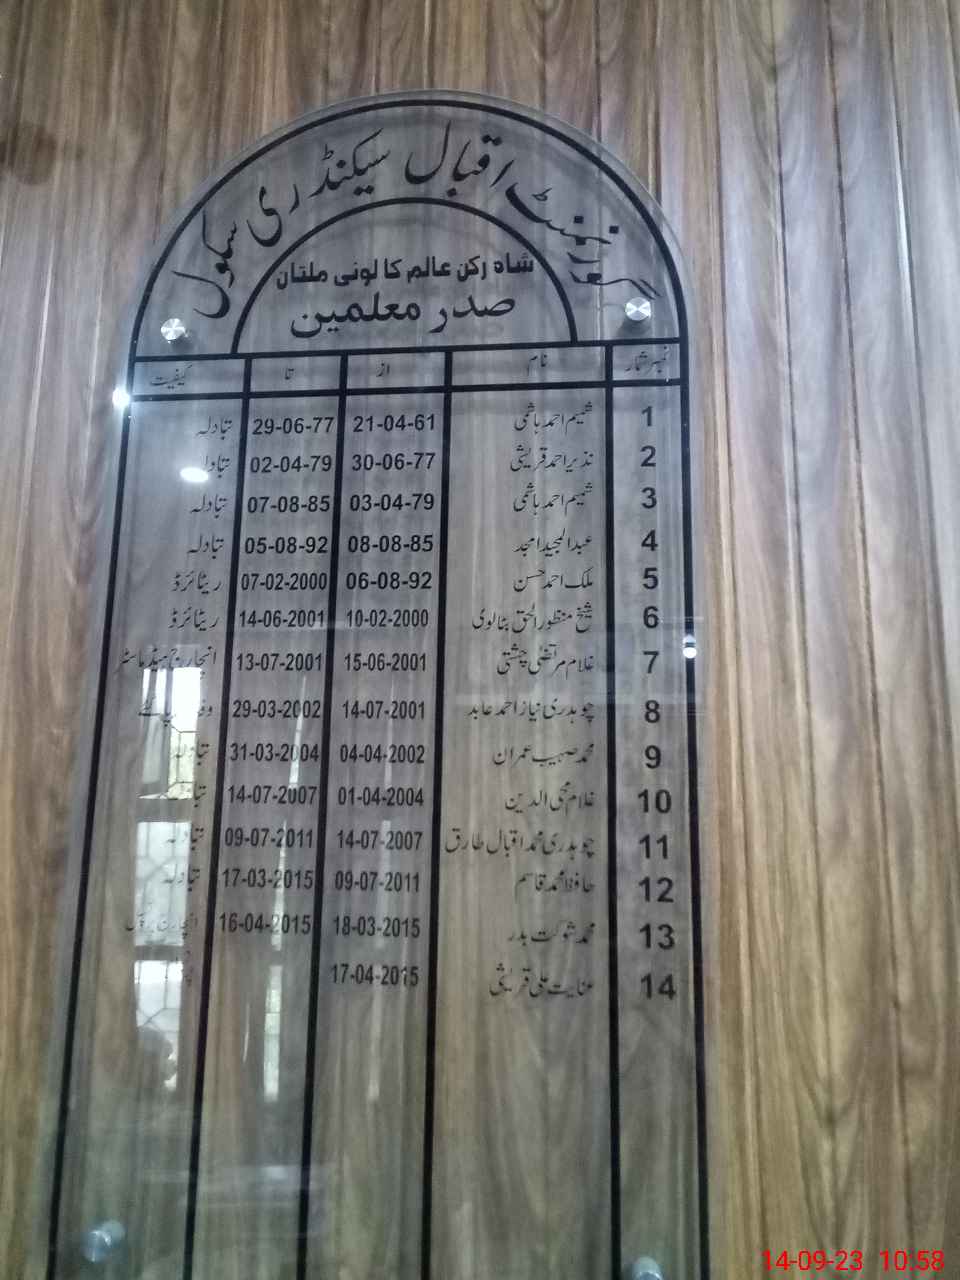 گورنمنٹ اقبال سیکنڈری سکول
شاہ رکن عالم کالونی ملتان
صدر معلمین
نمبر شمار نام از تا کیفیت
1 شمیم احمد ہاشمی 21-04-61 29-06-77 تبادلہ
2 نذیر احمد قریشی 30-06-77 02-04-79 تبادلہ
3 شمیم احمد ہاشمی 03-04-79 07-08-85 تبادلہ
4 عبدالمجید امجد 08-08-85 05-08-92 تبادلہ
5 ملک احمد حسن 06-08-92 07-02-2000 ریٹائرڈ
6 شیخ منظور الحق بٹالوی 10-02-2000 14-06-2001 ریٹائرڈ
7 غلام مرتضیٰ چشتی 15-06-2001 13-07-2001 انچارج ہیڈ ماسٹر
8 چوہدری نیاز احمد عابد 14-07-2001 29-03-2002 وفات پا گئے
9 محمد صہیب عمران 04-04-2002 31-03-2004 تبادلہ
10 غلام محی الدین 01-04-2004 14-07-2007 تبادلہ
11 چوہدری محمد اقبال طارق 14-07-2007 09-07-2011 تبادلہ
12 حافظ محمد قاسم 09-07-2011 17-03-2015 تبادلہ
13 محمد شوکت بدر 18-03-2015 16-04-2015 انچارج
14 عنایت علی قریشی 17-04-2015
14-09-23 10:58